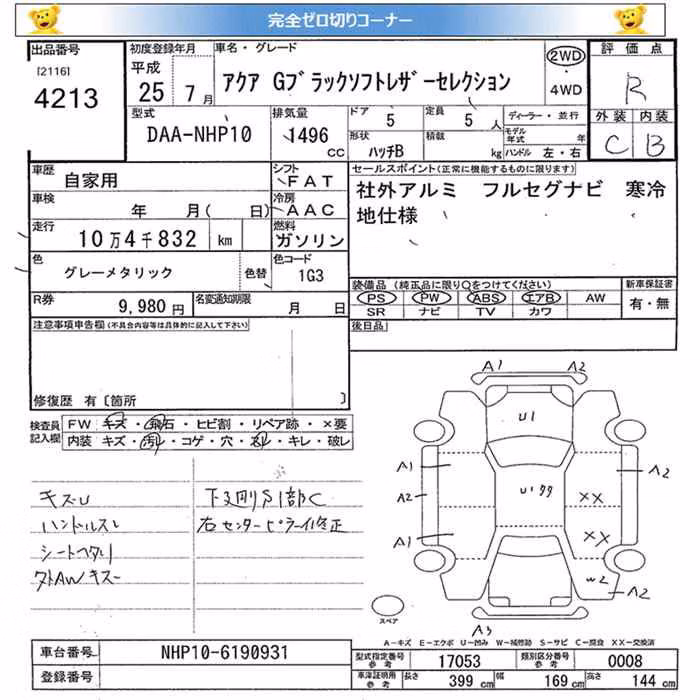 完全ゼロ切りコーナー
出品番号 初度登録年月 車名・グレード 評価点
[2116] 平成 アクア Gブラックソフトレザーセレクション 2WD R
4213 25 7月 4WD
型式 排気量 ドア 定員 ディーラー・並行 外装 内装
DAA-NHP10 1496 CC 5 5人 モデル年式 年 C B
形状 積載 kg ハンドル 左・右
ハッチB
車歴 自家用 シフト FAT セールスポイント(正常に機能するものに限ります)
車検 年 月( 日) 冷房 AAC 社外アルミ フルセグナビ 寒冷
地仕様
走行 10万4千832 km 燃料 ガソリン
色 グレーメタリック 色替 色コード 1G3
装備品(純正品に限り○をつけてください) 新車保証書
R券 9,980円 名変通知期限 月 日 PS PW ABS エアB AW 有・無
SR ナビ TV カワ
注意事項申告欄(不具合内容等は具体的に記入して下さい) 後日品
修復歴 有〔箇所 〕
検査員 FW キズ・飛石・ヒビ割・リペア跡・×要
記入欄 内装 キズ・汚れ・コゲ・穴・スレ・キレ・破レ
キズU 下廻りS1部C
ハンドルスレ 右センターピラー修正
シートヘタリ
外AWキズ
A1 A2
U1
A1 A2
A2 U1 XX
A1 XX
W2 A2
A3
スペア
A-キズ E-エクボ U-凹み W-補修跡 S-サビ C-腐食 XX-交換済
車台番号 NHP10-6190931
登録番号
型式指定番号 参考 17053 類別区分番号 参考 0008
車庫証明用 参考 長さ 399 cm 幅 169 cm 高さ 144 cm